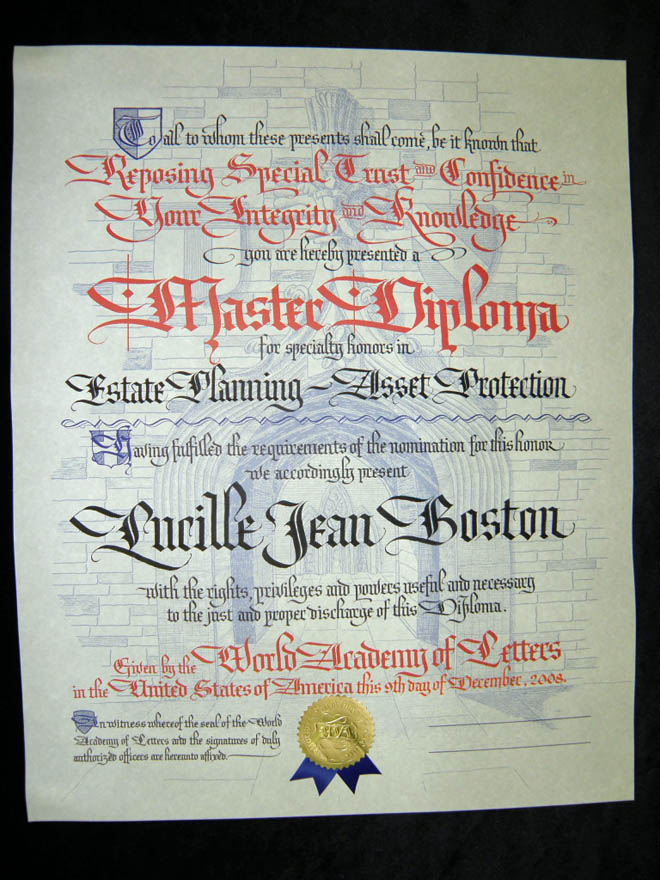 To all to whom these presents shall come, be it known that
Reposing Special Trust and Confidence in
Your Integrity and Knowledge
you are hereby presented a
Master Diploma
for specialty honors in
Estate Planning – Asset Protection
Having fulfilled the requirements of the nomination for this honor
we accordingly present
Lucille Jean Boston
with the rights, privileges and powers useful and necessary
to the just and proper discharge of this Diploma.
Given by the World Academy of Letters
in the United States of America this 9th day of December, 2008.
In witness whereof the seal of the World
Academy of Letters and the signatures of duly
authorized officers are hereunto affixed.